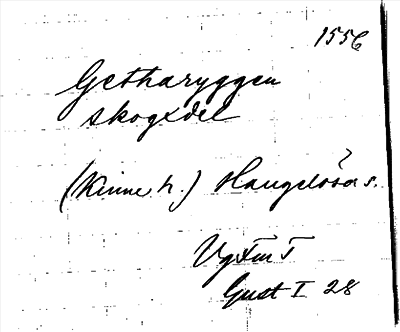 1556
Getharyggen
skogxdel
(Kinne h.) Haugdösa s.
Gust I 28